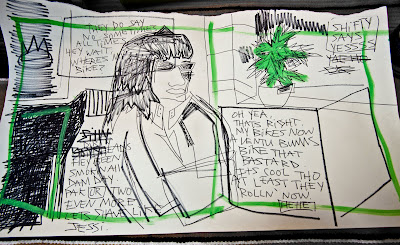 THEY DO SAY
NO SOMETIMES
ALL TIMES
HEY KAI
WHERES
BIKE?
SHIFTY
SAYS
YESSSS
MEANS
HE BEEN
SMOKN ALL
DAMN DAY
PAR OR TWO
EVEN MORE
LETS SHAVE LIKE
JESSI.
OH YEA.
THATS RIGHT.
MY BIKES NOW
BUMMS
BIKE THAT
BASTARD
ITS COOL THO
AT LEAST THEY
ROLLN NOW
HEHE